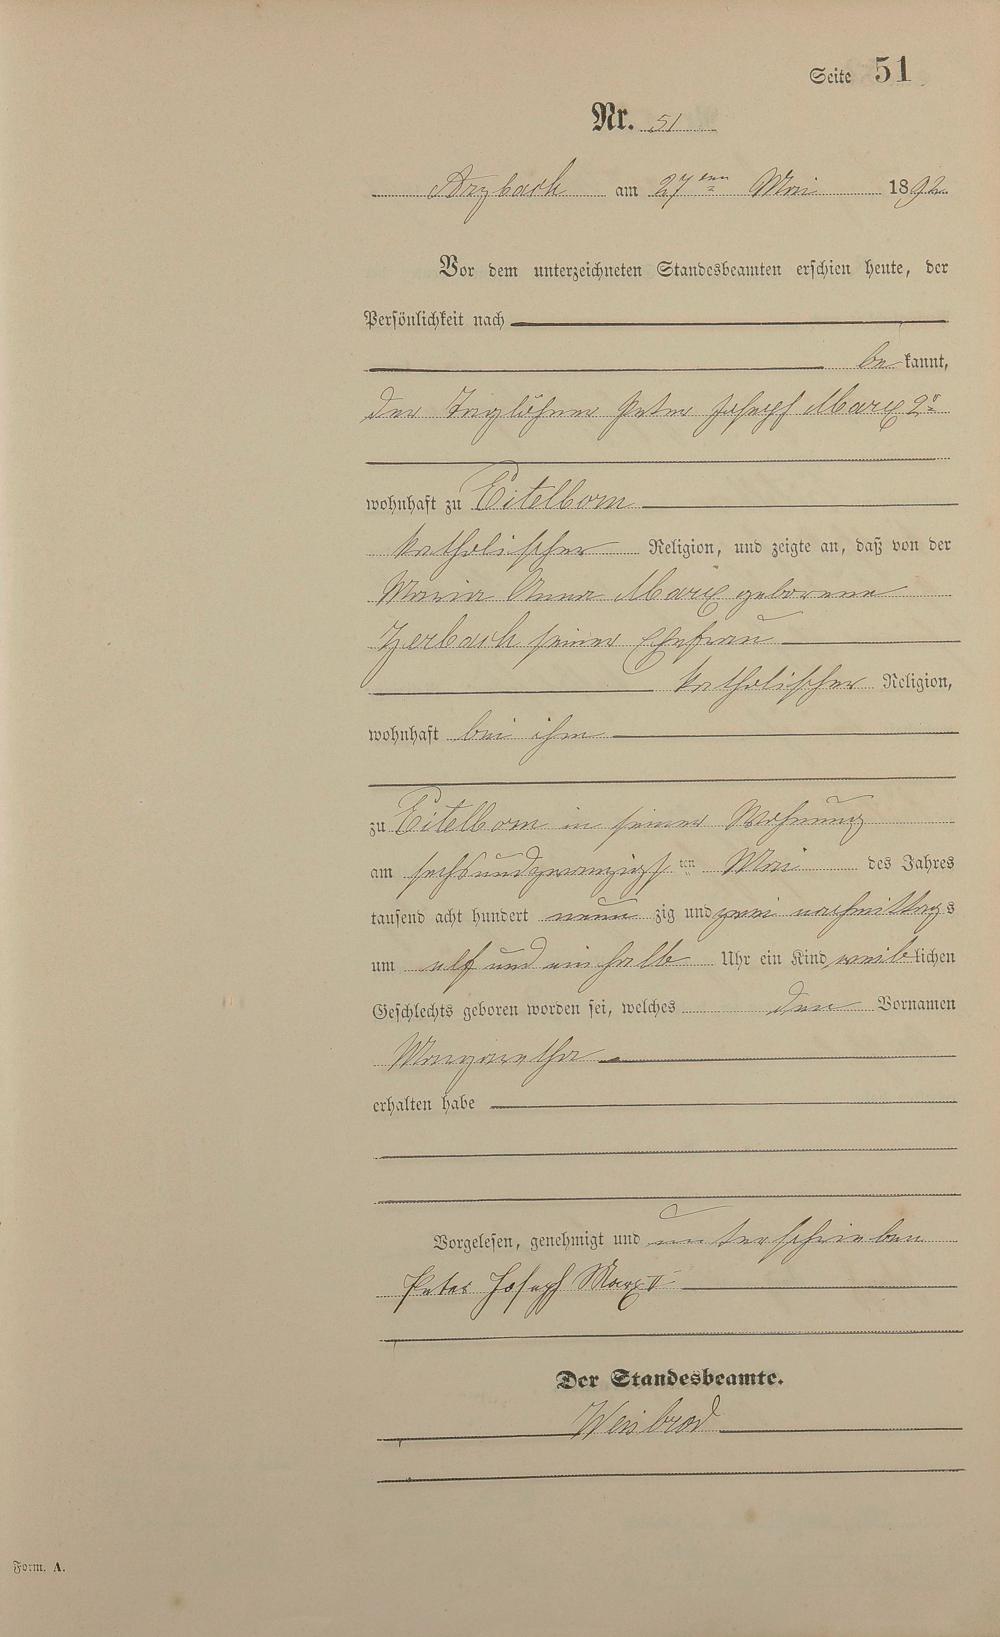 Seite 51
Nr. 51
Arzbach am 27ten Mai 1892
Vor dem unterzeichneten Standesbeamten erschien heute, der
Persönlichkeit nach
be kannt,
der Taglöhner Peter Joseph Marx 2r
wohnhaft zu Eitelborn
katholischer Religion, und zeigte an, daß von der
Maria Anna Marx geborene
Zerbach seiner Ehefrau
katholischer Religion,
wohnhaft bei ihm
zu Eitelborn in seiner Wohnung
am sechsundzwanzigsten Mai des Jahres
tausend acht hundert neun zig und zwei nachmittags
um elf und ein halb Uhr ein Kind weiblichen
Geschlechts geboren worden sei, welches den Vornamen
Margaretha
erhalten habe
Vorgelesen, genehmigt und unterschrieben
Peter Joseph Marx II
Der Standesbeamte.
Weisbrod
Form. A.